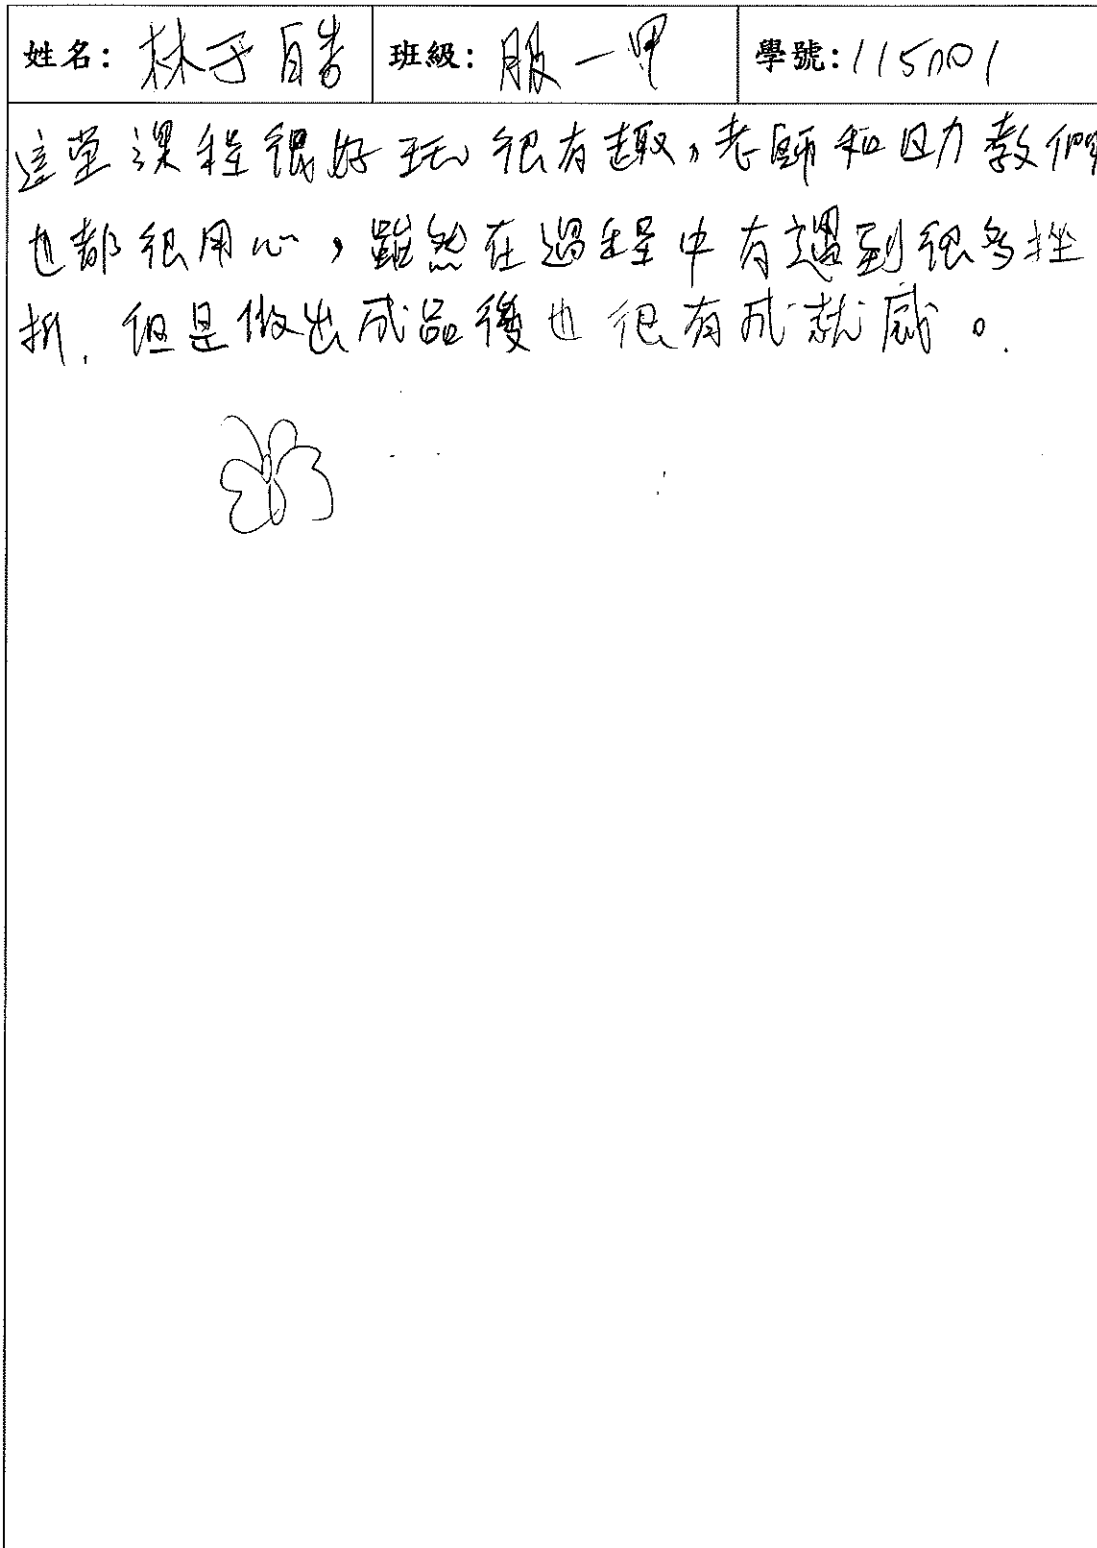 姓名: 林于皓 班級: 服一甲 學號: 115001
這堂課程很好玩很有趣,老師和助教們
也都很用心,雖然在過程中有遇到很多挫
折,但是做出成品後也很有成就感。